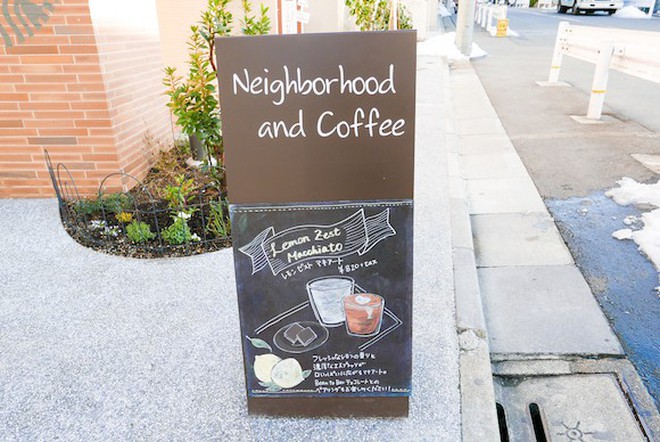 Neighborhood
and Coffee
Lemon Zest
Macchiato
レモンゼスト マキアート
¥820+tax
フレッシュなレモンの香りと
濃厚なエスプレッソが
口いっぱいに広がるマキアート。
Bean to Bar チョコレートとの
ペアリングもお楽しみください!